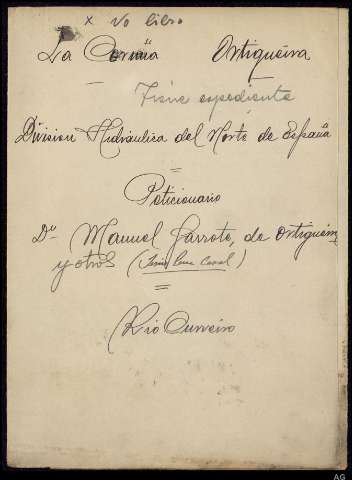 x No libro
La Coruña Ortigueira
Tiene expediente
División Hidráulica del Norte de España
=
Peticionario
Dn Manuel Garrote, de Ortigueira,
y otros (
=
Río
AG